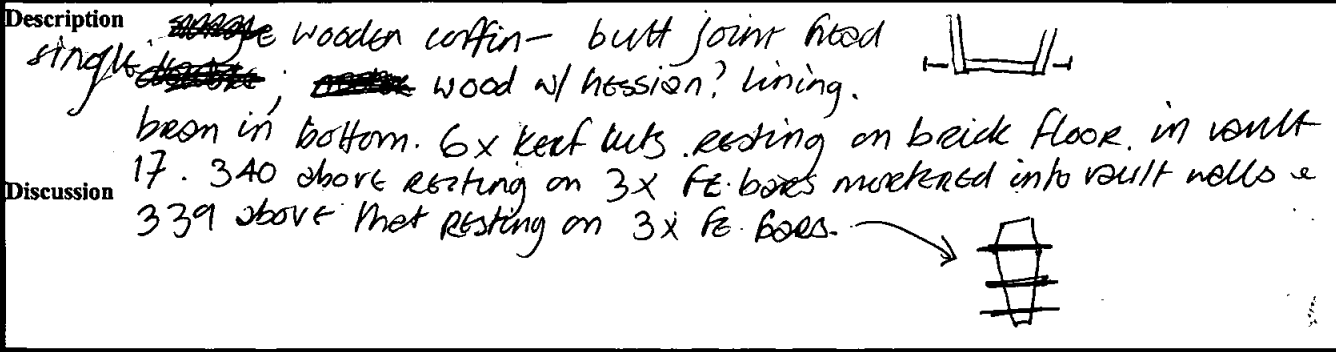 Description wooden coffin - butt joint head
single ; wood w/ hessian? lining.
bran in bottom. 6x kerf cuts. resting on brick floor. in vault
17. 340 above resting on 3x Fe. bars mortered into vault walls &
Discussion
339 above that resting on 3x Fe. bars.